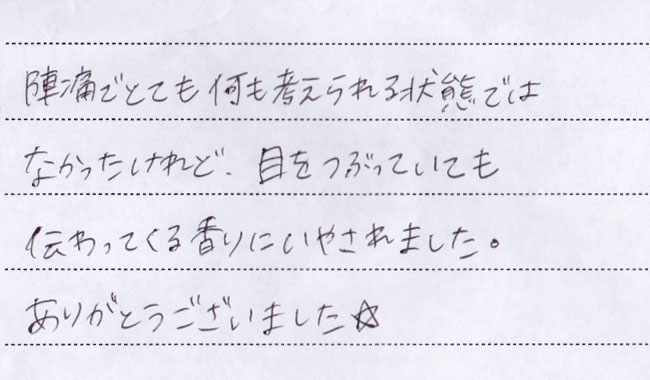 陣痛でとても何も考えられる状態では
なかったけれど、目をつぶっていても
伝わってくる香りにいやされました。
ありがとうございました☆